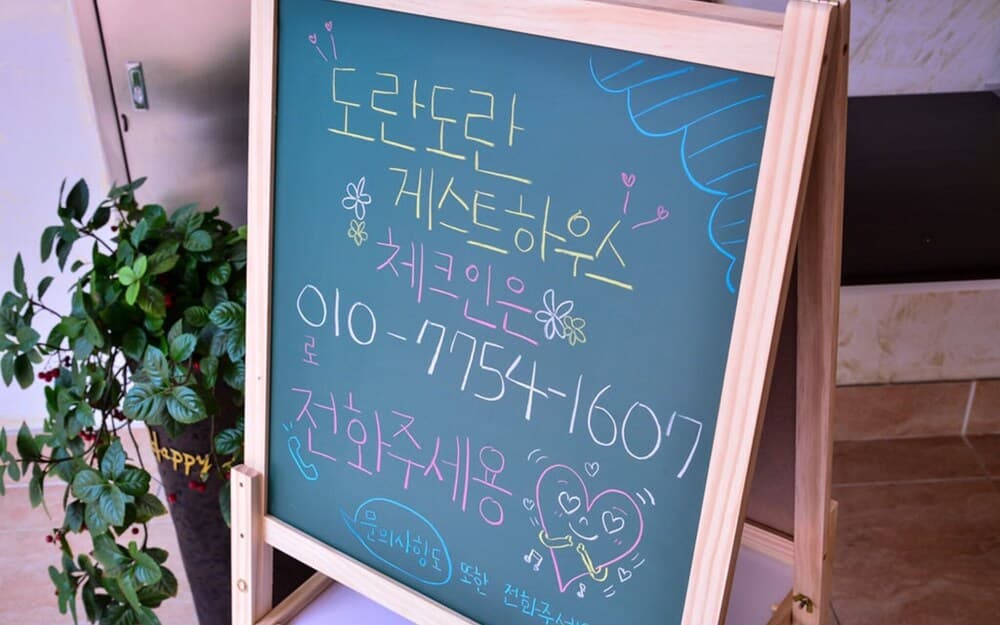 도란도란
게스트하우스
체크인은
010-7754-1607
로
전화주세용
문의사항도 또한 전화주세
Happy